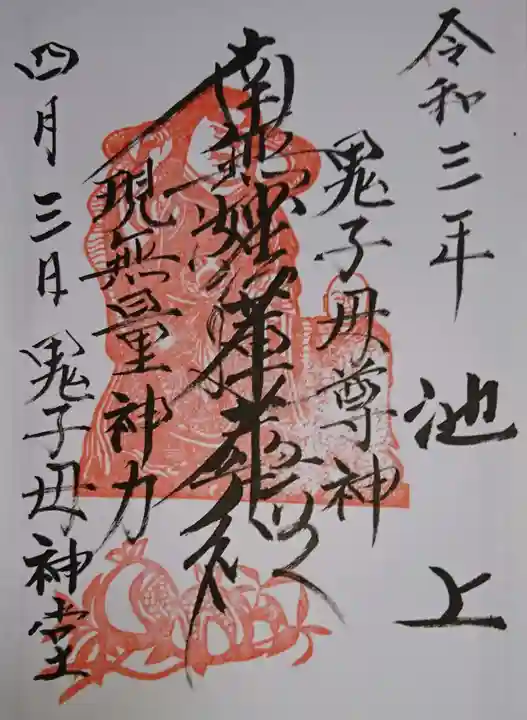 令和三年
池上
鬼子母尊神
南無妙法蓮華経
現無量神力
四月三日 鬼子母神堂